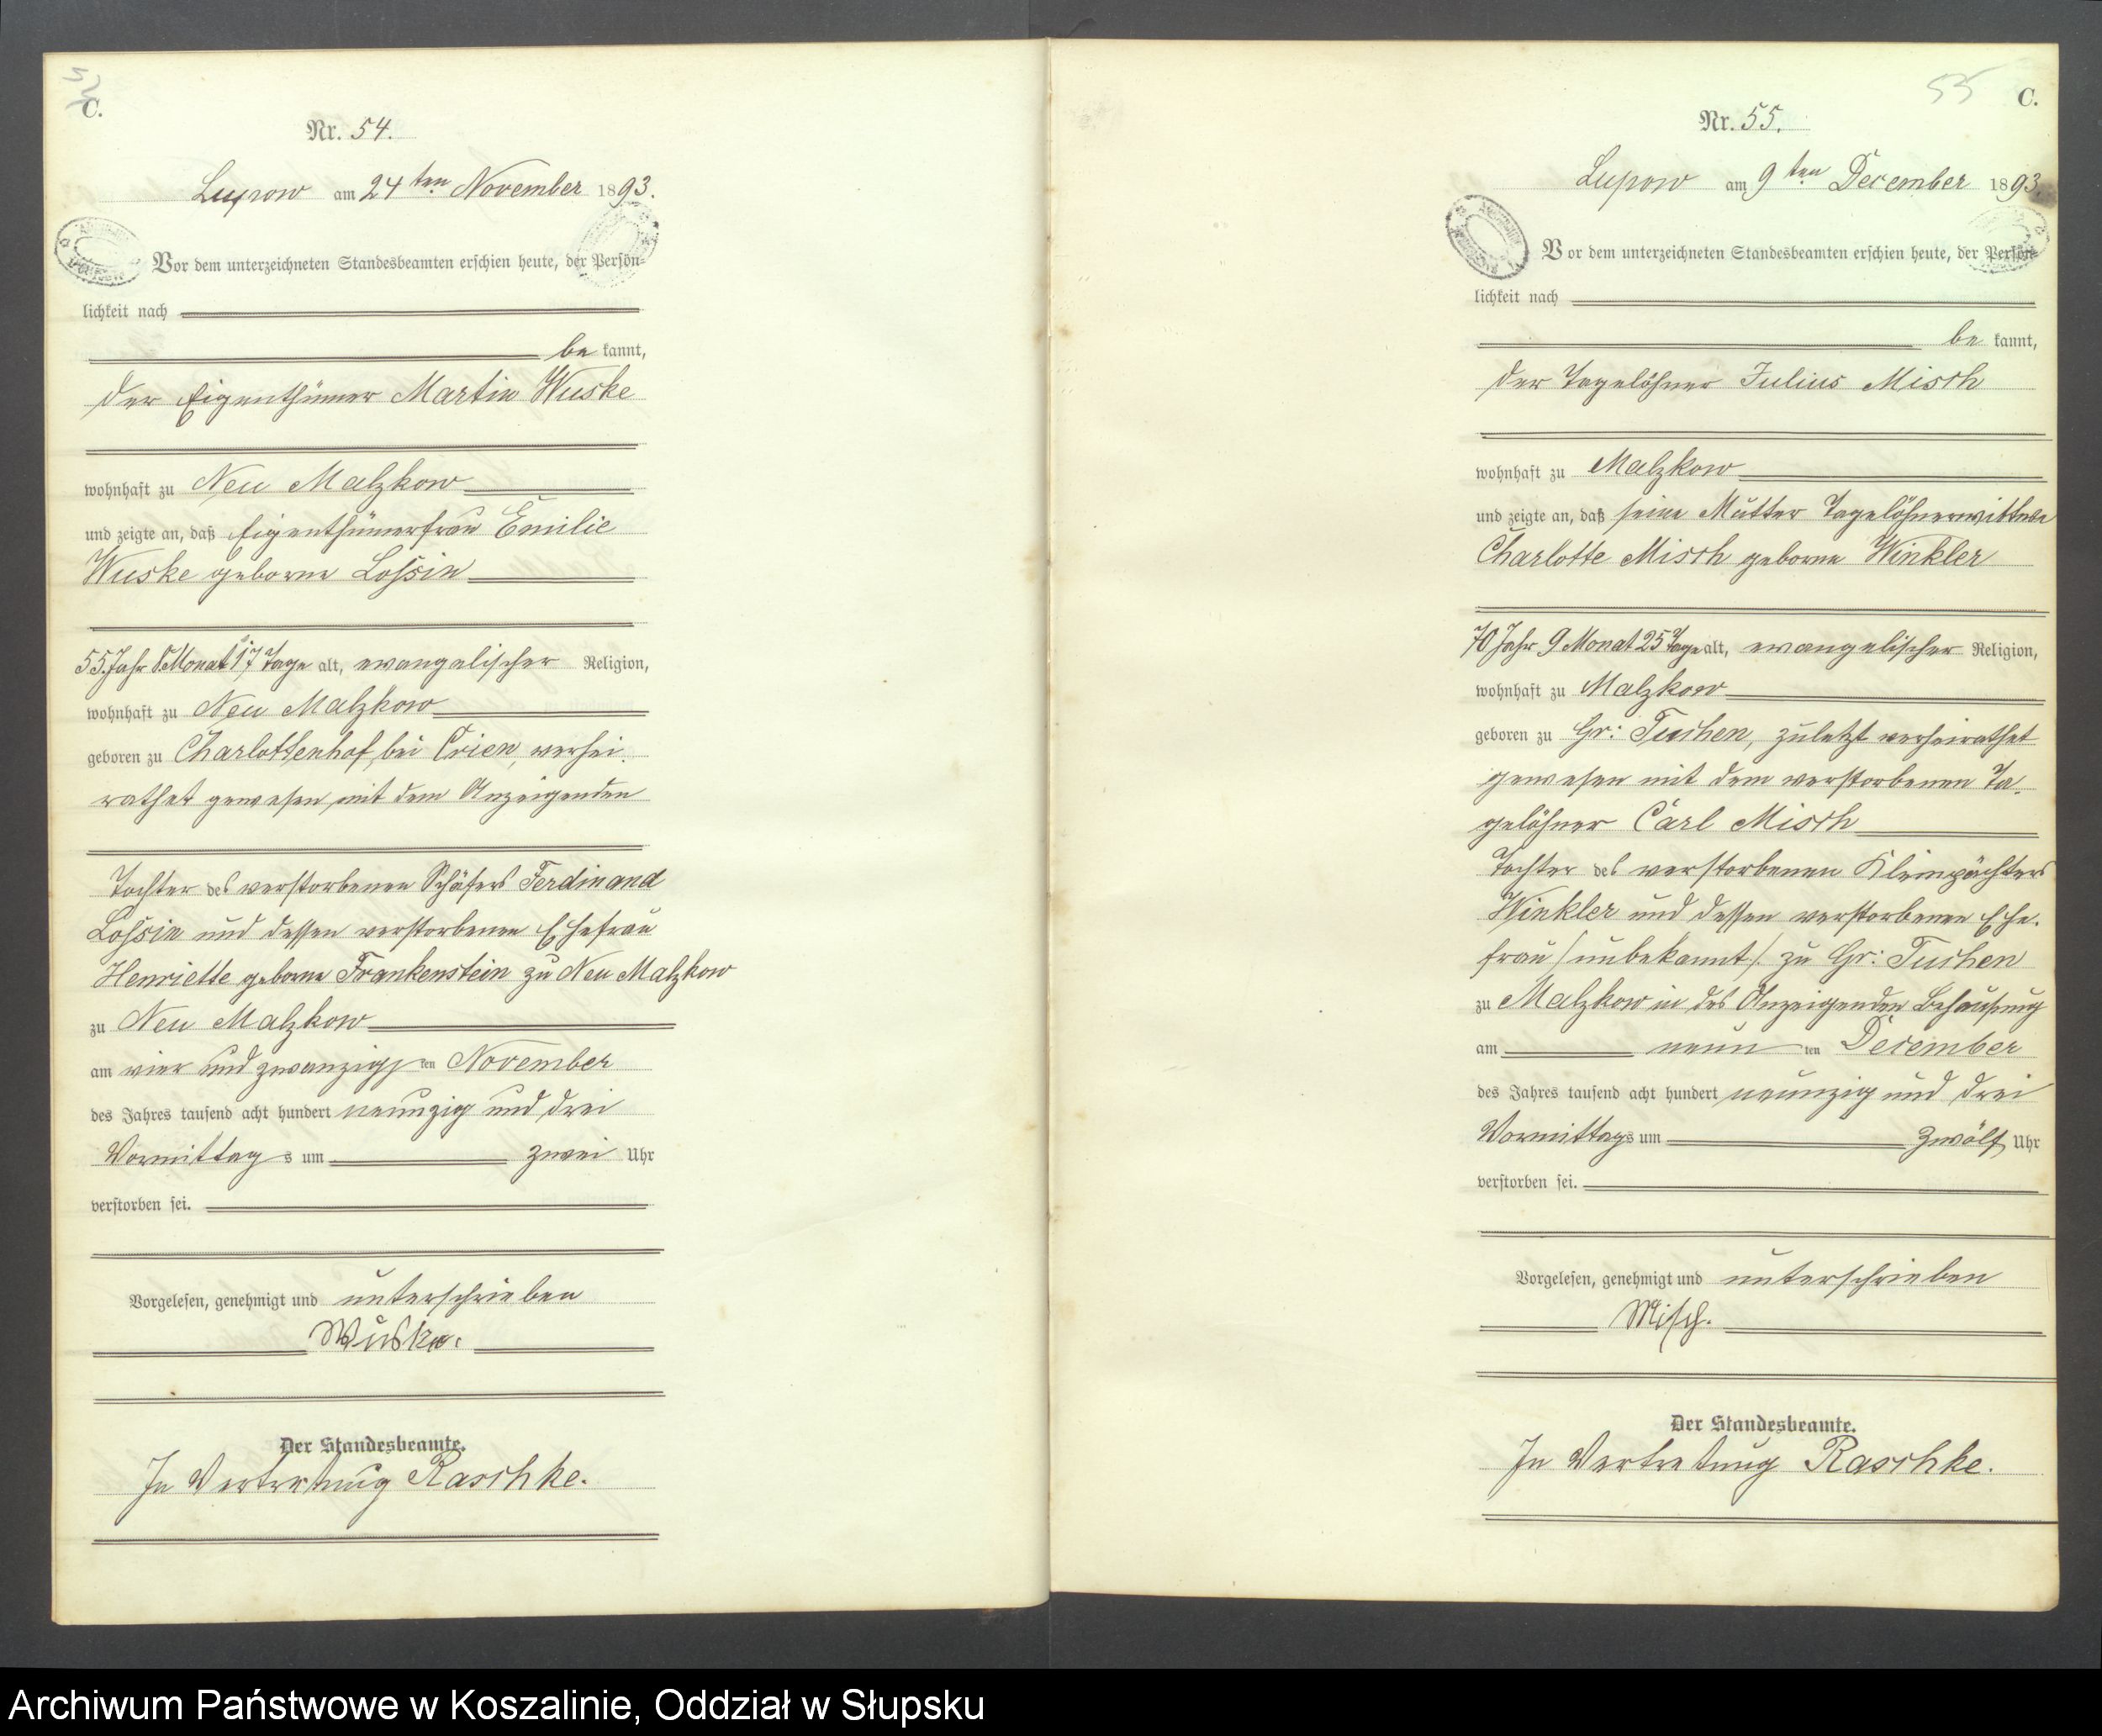 C.
Nr. 54.
Lupow am 24ten November 1893.
Vor dem unterzeichneten Standesbeamten erschien heute, der Persön-
lichkeit nach
be kannt,
der Eigenthümer Martin Wuske
wohnhaft zu Neu Malzkow
und zeigte an, daß Eigenthümerfrau Emilie
Wuske geborne Lossin
55 Jahr Monat 17 Tage alt, evangelischer Religion,
wohnhaft zu Neu Malzkow
geboren zu Charlottenhof bei Crien, verhei-
rathet gewesen mit dem Anzeigenden
Tochter des verstorbenen Schäfers Ferdinand
Lossin und dessen verstorbenen Ehefrau
Henriette geborne Frankenstein zu Neu Malzkow
zu Neu Malzkow
am vier und zwanzigsten November
des Jahres tausend acht hundert neunzig und drei
Vormittags um zwei Uhr
verstorben sei.
Vorgelesen, genehmigt und unterschrieben
Wuske.
Der Standesbeamte.
In Vertretung Raschke.
55 C.
Nr. 55.
Lupow am 9ten December 1893.
Vor dem unterzeichneten Standesbeamten erschien heute, der Persön-
lichkeit nach
be kannt,
der Tagelöhner Julius Misch
wohnhaft zu Malzkow
und zeigte an, daß seine Mutter Tagelöhnerwittwe
Charlotte Misch geborne Winkler
70 Jahr 9 Monat 25 Tage alt, evangelischer Religion,
wohnhaft zu Malzkow
geboren zu Gr: Tuchen, zuletzt verheirathet
gewesen mit dem verstorbenen Ta-
gelöhner Carl Misch
Tochter des verstorbenen Kleinpächters
Winkler und dessen verstorbenen Ehe-
frau /unbekannt/. zu Gr: Tuchen
zu Malzkow in des Anzeigenden Behausung
am neun ten December
des Jahres tausend acht hundert neunzig und drei
Vormittags um zwölf Uhr
verstorben sei.
Vorgelesen, genehmigt und unterschrieben
Misch.
Der Standesbeamte.
In Vertretung Raschke.
Archiwum Państwowe w Koszalinie, Oddział w Słupsku